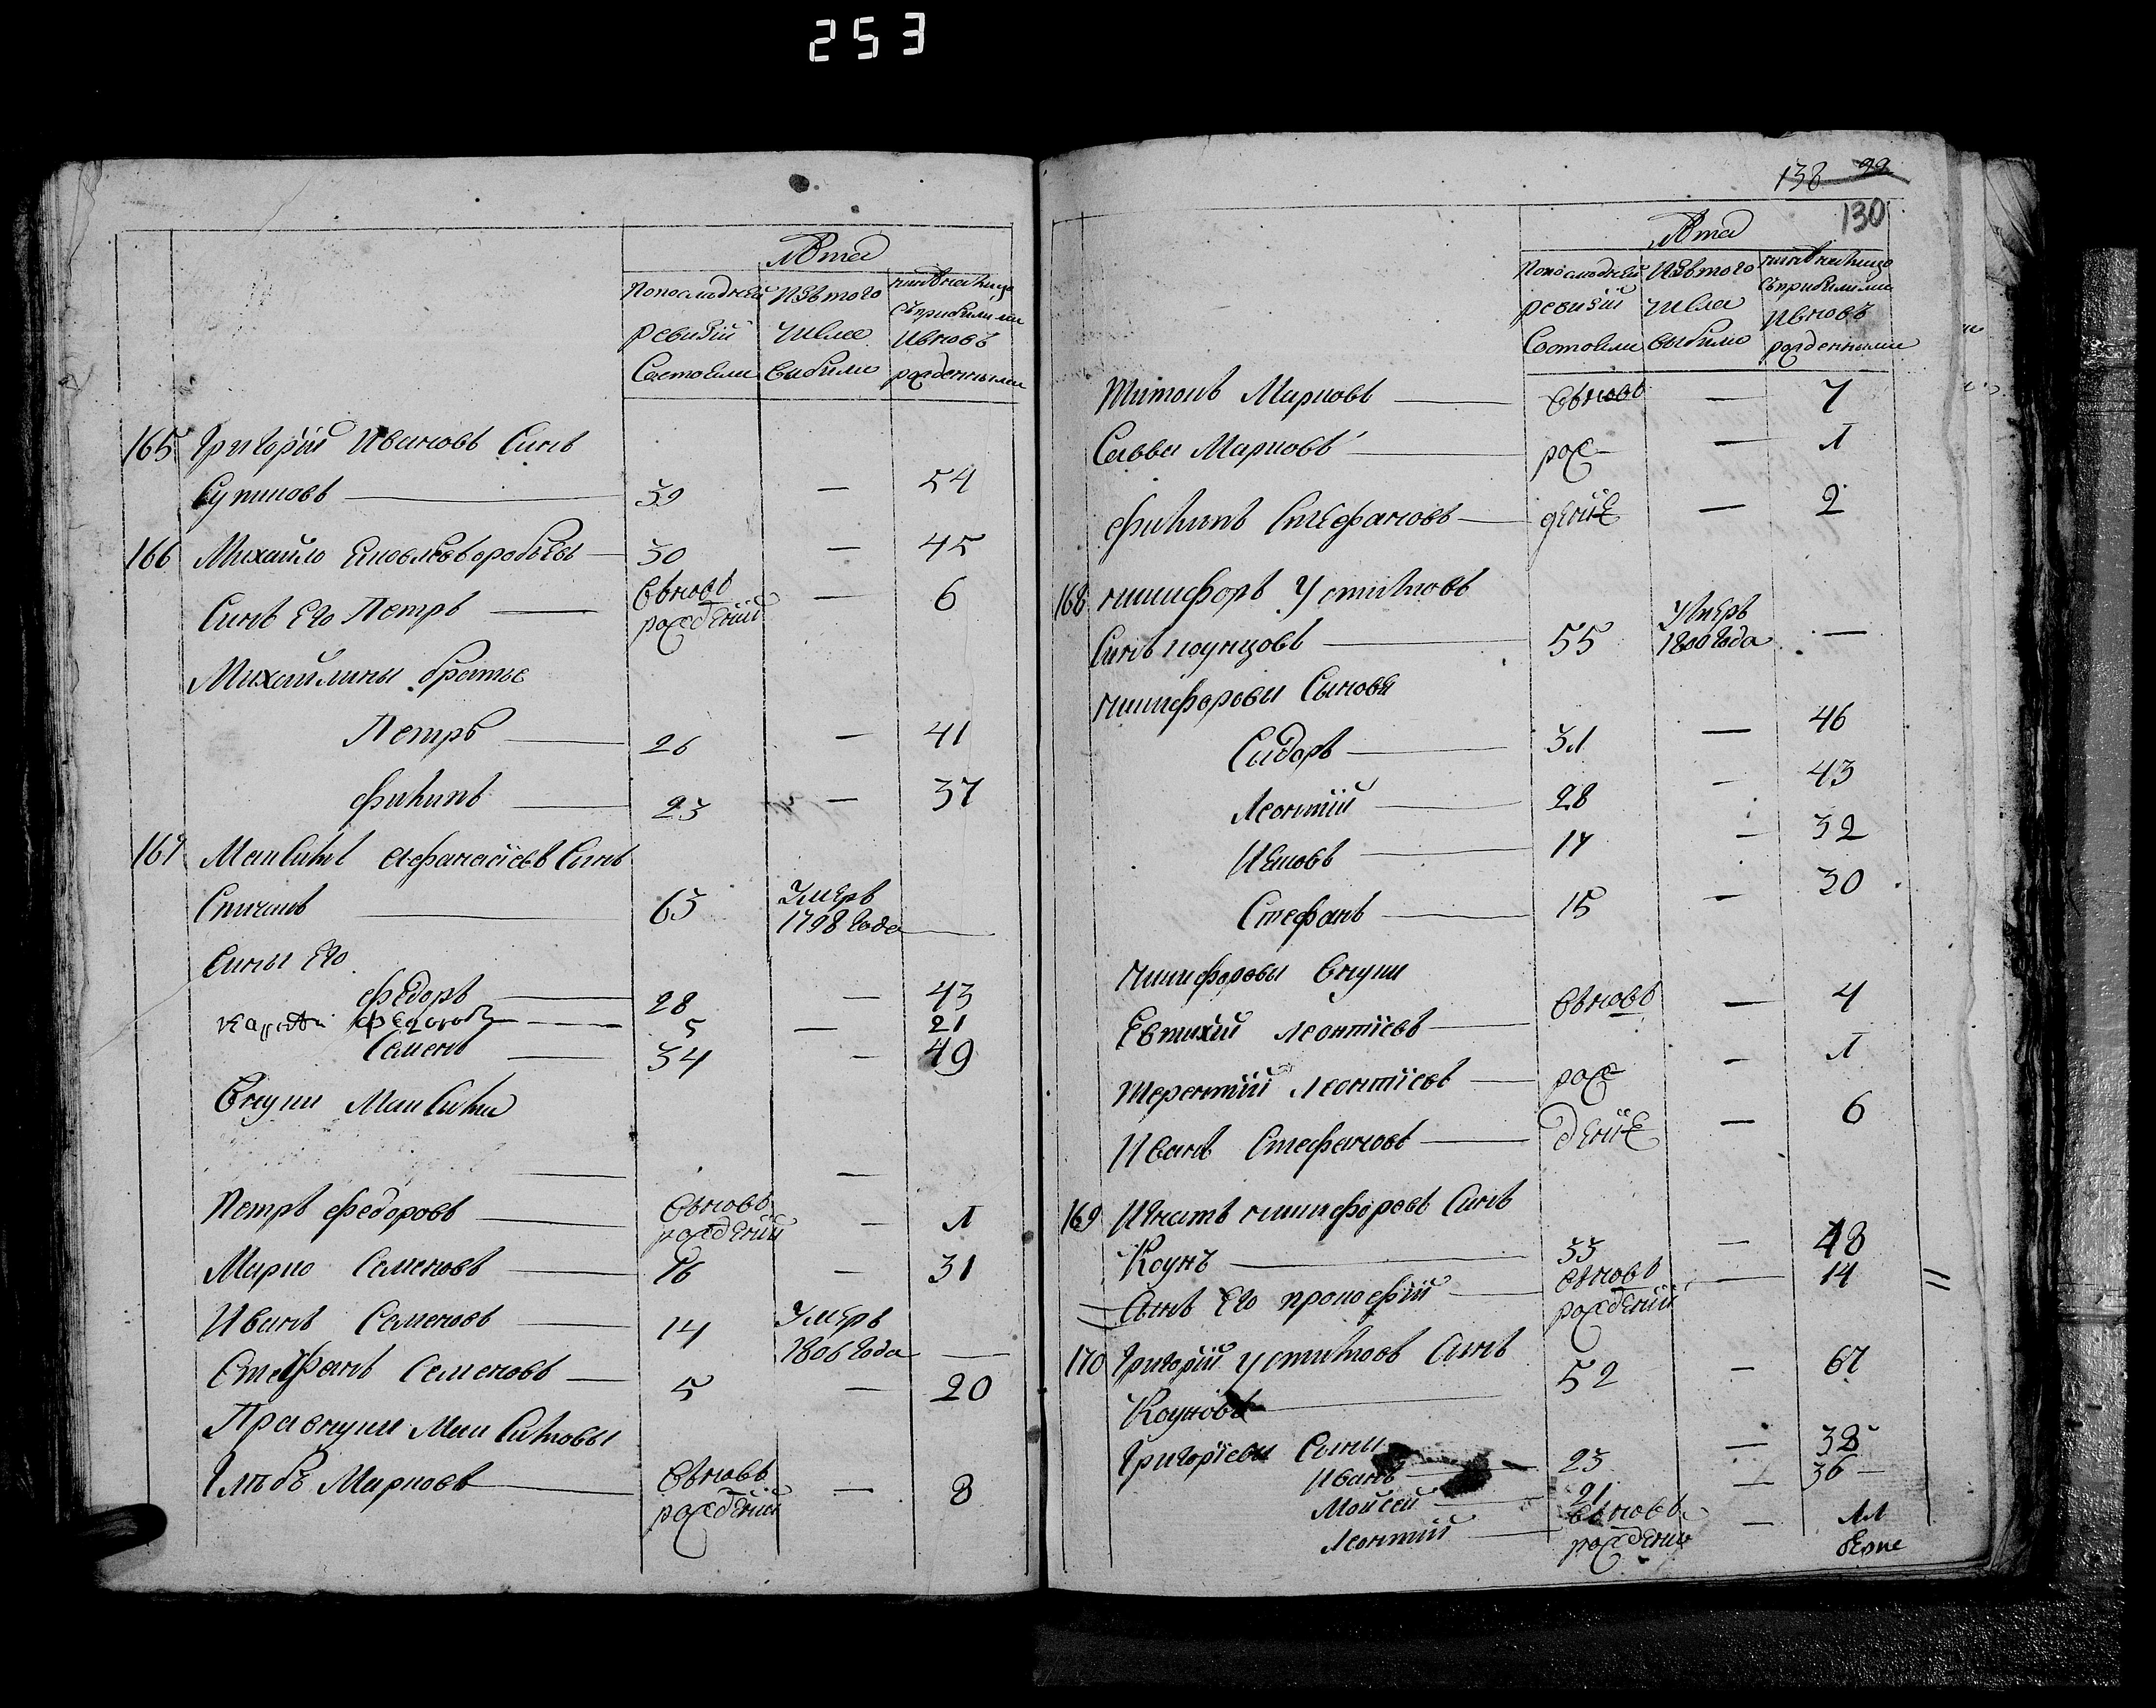 253
Лѣта
Попоследней
ревизіи
Состояли
Изътого
числа
выбыли
нынѣналицо
Съприбылыми
Ивновь
рожденными
165 Григорій Ивановъ Сынъ
Супиновъ — 39 — 54
166 Михайло Яковлевъ воробьевъ — 30 — 45
Сынъ Его Петръ — Вновь рожденій — 6
Михайлины братье
Петръ — 26 — 41
Филипъ — 23 — 37
167 Максимъ афанасіевъ Сынъ
Спичакъ — 65 Умеръ 1798 года —
Сыны Его
Федоръ — 28 — 43
Федоровъ — 5 — 21
Семенъ — 34 — 49
Внуки Максима
— —
Петръ Федоровъ — Вновь рожденій — 1
Марко Семеновъ — 16 — 31
Иванъ Семеновъ — 14 Умеръ 1806 года —
Стефанъ Семеновъ — 5 — 20
Правнуки Максимовы
Глѣбъ Марковъ — Вновь рожденій — 8
138 99
130
Лѣта
Попоследней
ревизіи
Состояли
Изътого
числа
выбыло
нынѣналицо
Съприбылыми
Ивновъ
рожденными
Титонъ Марковъ — Вновь — 7
Савва Марковъ — рож — 1
Филипъ Стефановъ — деніе — 2
168 никифоръ Устимовъ
Сынъ коунцовъ — 55 Умеръ 1800 года —
никифоровы Сыновя
Сидоръ — 31 — 46
Леонтій — 28 — 43
Яковъ — 17 — 32
Стефанъ — 15 — 30
никифоровы внуки
Евтихій Леонтіевъ — Вновь — 4
Терентій Леонтіевъ — рож — 1
Иванъ Стефановъ — деніе — 6
169 Игнатъ никифоровъ Сынъ
Коунъ — 33 — 48
Сынъ Его прокофій — вновь рожденій — 14
170 Григорій устимовъ Сынъ
Коуновъ — 52 — 67
Григоріевы Сыны
Иванъ — 23 — 38
Мойсей — 21 — 36 —
Леонтій — Вновь рожденій — 11